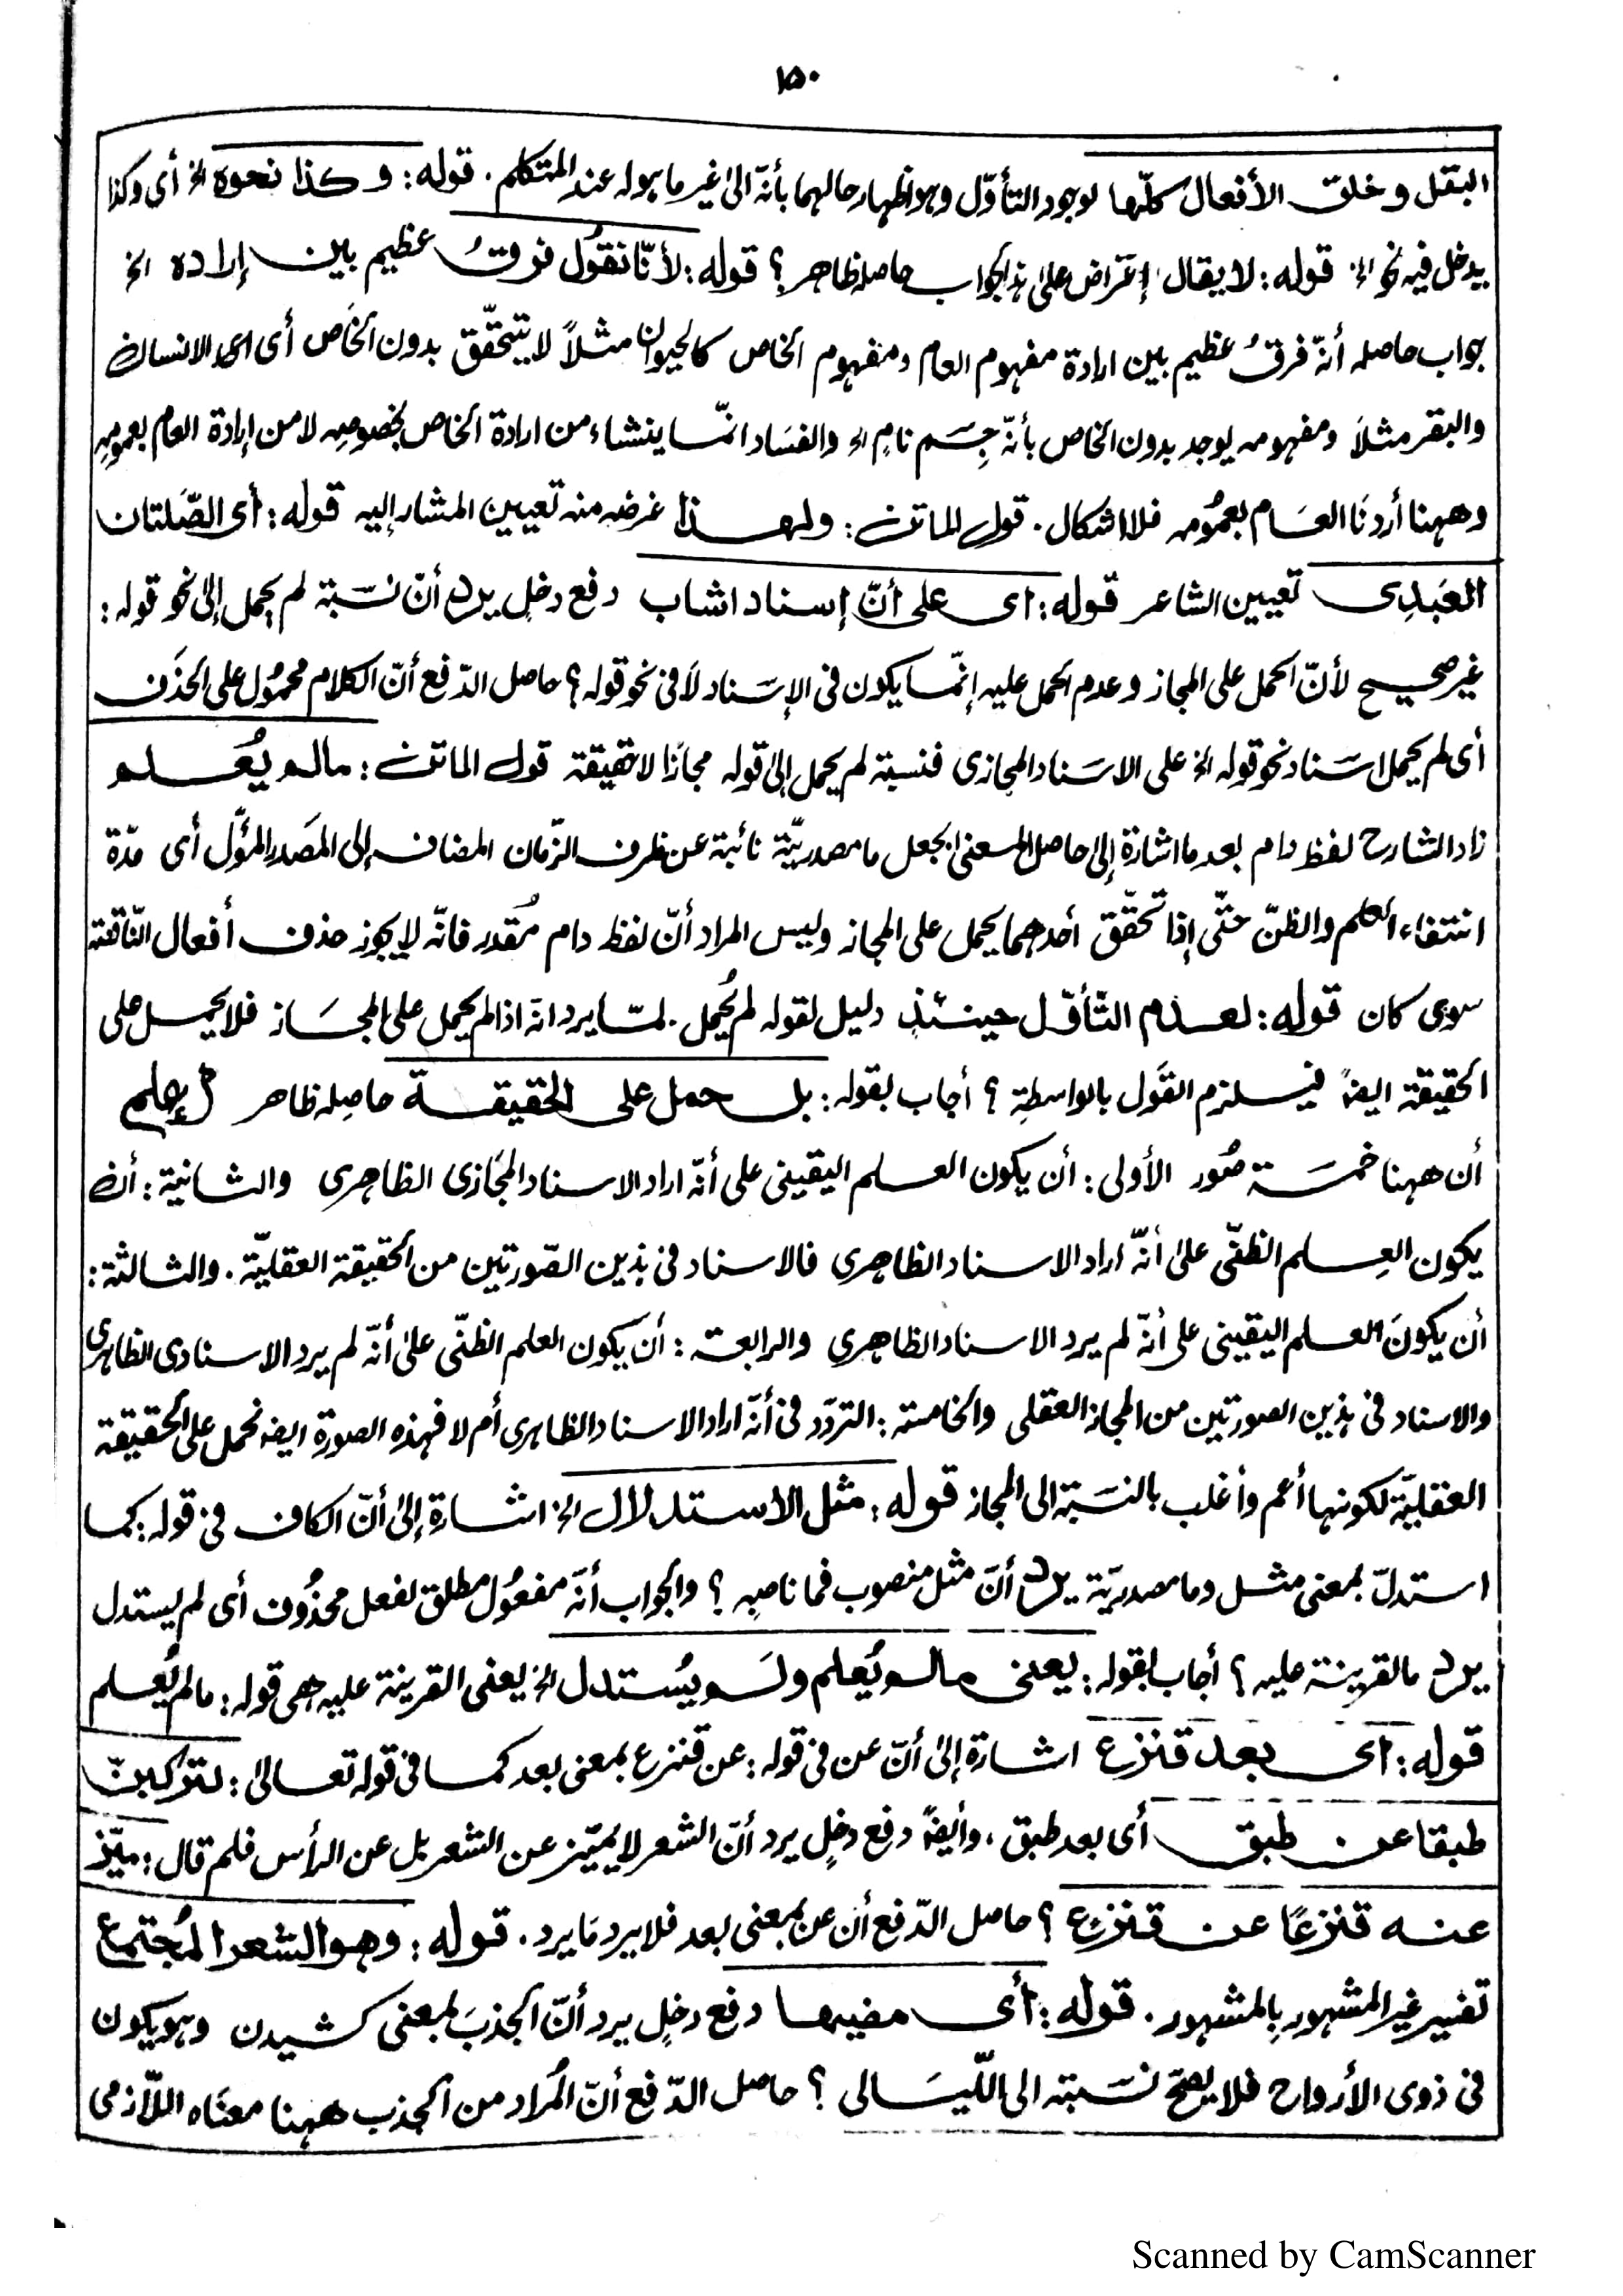 ١٥٠
البقل وخلق الأفعال كلّها لوجود التأوّل وهو اظهار حالهما بأنّه الى غير ما هو له عند المتكلم. قوله: وكذا نحوه الخ أى وكذا
يدخل فيه نحو الخ قوله: لا يقال إعتراض على هذا الجواب حاصله ظاهر؟ قوله: لأنّا نقول فرقٌ عظيم بين إرادة الخ
جواب حاصله أنّه فرقٌ عظيم بين ارادة مفهوم العام ومفهوم الخاص كالحيوان مثلاً لا يتحقّق بدون الخاص أى الانسان
والبقر مثلاً ومفهومه يوجد بدون الخاص بأنّه جِسَم نامٍ الخ والفسَاد انمّا ينشاء من ارادة الخاص بخصوصِه لا من إرادة العام بعمومِه
وههنا أردنَا العَام بعمُومه فلا اشكال. قول الماتن: ولهذا غرضه منه تعيين المشار إليه قوله: أى الصّلتان
العَبدِى تعيين الشاعر قوله: اى على أنّ إسناد اشاب دفع دخلٍ يرد أنّ نسَبة لم يحمل إلى نحو قوله:
غير صحيح لأنّ الحمل على المجاز وعدم الحمل عليه إنّمّا يكون فى الإسَناد لاَ فى نحو قوله؟ حاصل الدّفع أنّ الكلام محمُول على الحذَف
أى لم يحمل اسَناد نحو قوله الخ على الاسَناد المجازى فنسبة لم يحمل إلى قوله مجازًا لا حقيقة قول الماتن: مالم يُعلم
زاد الشارح لفظ دام بعد ما اشارة إلى حاصل المعنى بجعل ما مصدريّة نائبة عن ظرف الزّمان المضاف إلى المصَدر المؤّل أى مدّة
انتفاء العلم والظنّ حتّى إذا تحقّق أحدهما يحمل على المجاز وليس المراد أنّ لفظ دام مُقدر فانّه لا يجوز حذف أفعال النّاقصة
سوى كان قوله: لعدم التّأوّل حينئذٍ دليل لقوله لم يُحمل. لمّا يرد انه اذا لم يحمل على المجَاز فلا يحمل على
الحقيقة ايضًا فيلزم القَول بالواسطةِ؟ أجاب بقوله: بل حمل على الحقيقة حاصِله ظاهر إعلم
أن ههنا خمسَة صُور الأولى: أن يكون العلم اليقينى على أنّه اراد الاسناد المجَازى الظاهرى والثانية: أن
يكون العِلم الظنّى على أنّه اراد الاسناد الظاهرى فالاسناد فى هذين الصّورتين من الحقيقة العقليّة. والثالثة:
أن يكونَ العلم اليقينى على أنّه لم يرد الاسناد الظاهرى والرابعة: أن يكون العلم الظنّى على أنّه لم يرد الاسنادى الظاهرى
والاسناد فى هذين الصورتين من المجاز العقلى والخامسة: التردّد فى أنّه اراد الاسناد الظاهرى أم لا فهذه الصورة ايضا نحمل على الحقيقة
العقليّة لكونها أعم وأغلب بالنسَبة الى المجاز قوله: مثل الاستدلال الخ اشارة إلى أنّ الكاف فى قوله: كما
استدلّ بمعنى مثل وما مصدريّة يرد أنّ مثل منصوب فما ناصبه؟ والجواب أنّه مفعُول مطلق لفعل محذُوف أى لم يستدل
يرد ما القرينة عليه؟ أجاب بقوله: يعنى مالم يُعلم ولَم يُستدل الخ يعنى القرينة عليه هى قوله: مالم يُعلم
قوله: اى بعد قنزع اشارة إلى أنّ عن فى قوله: عن قنزع بمعنى بعد كما فى قوله تعالى: لتركبنّ
طبقا عن طبق أى بعد طبق، وأيضًا دفع دخلٍ يرد أنّ الشعر لا يميّز عن الشعر بل عن الرأس فلم قال: ميّز
عنه قنزعًا عن قنزع؟ حاصل الدّفع أن عن بمعنى بعد فلا يرد مَا يرد. قوله: وهو الشعر المُجتمع
تفسير غير المشهور بالمشهور. قوله: أى مضيها دفع دخلٍ يرد أنّ الجذبَ بمعنى كشيدن وهو يكون
فى ذوى الأرواح فلا يصحّ نسَبته الى اللّيَالى؟ حاصل الدّفع أنّ المُراد من الجذب ههنا معنَاه اللّازمى
Scanned by CamScanner